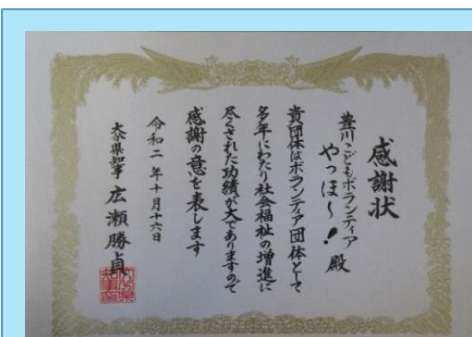 感謝状
豊川こどもボランティア
やっほ～！殿
貴団体はボランティア団体として
多年にわたり社会福祉の増進に
尽くされた功績が大でありますので
感謝の意を表します
令和二年十月十六日
大分県知事 広瀬勝貞